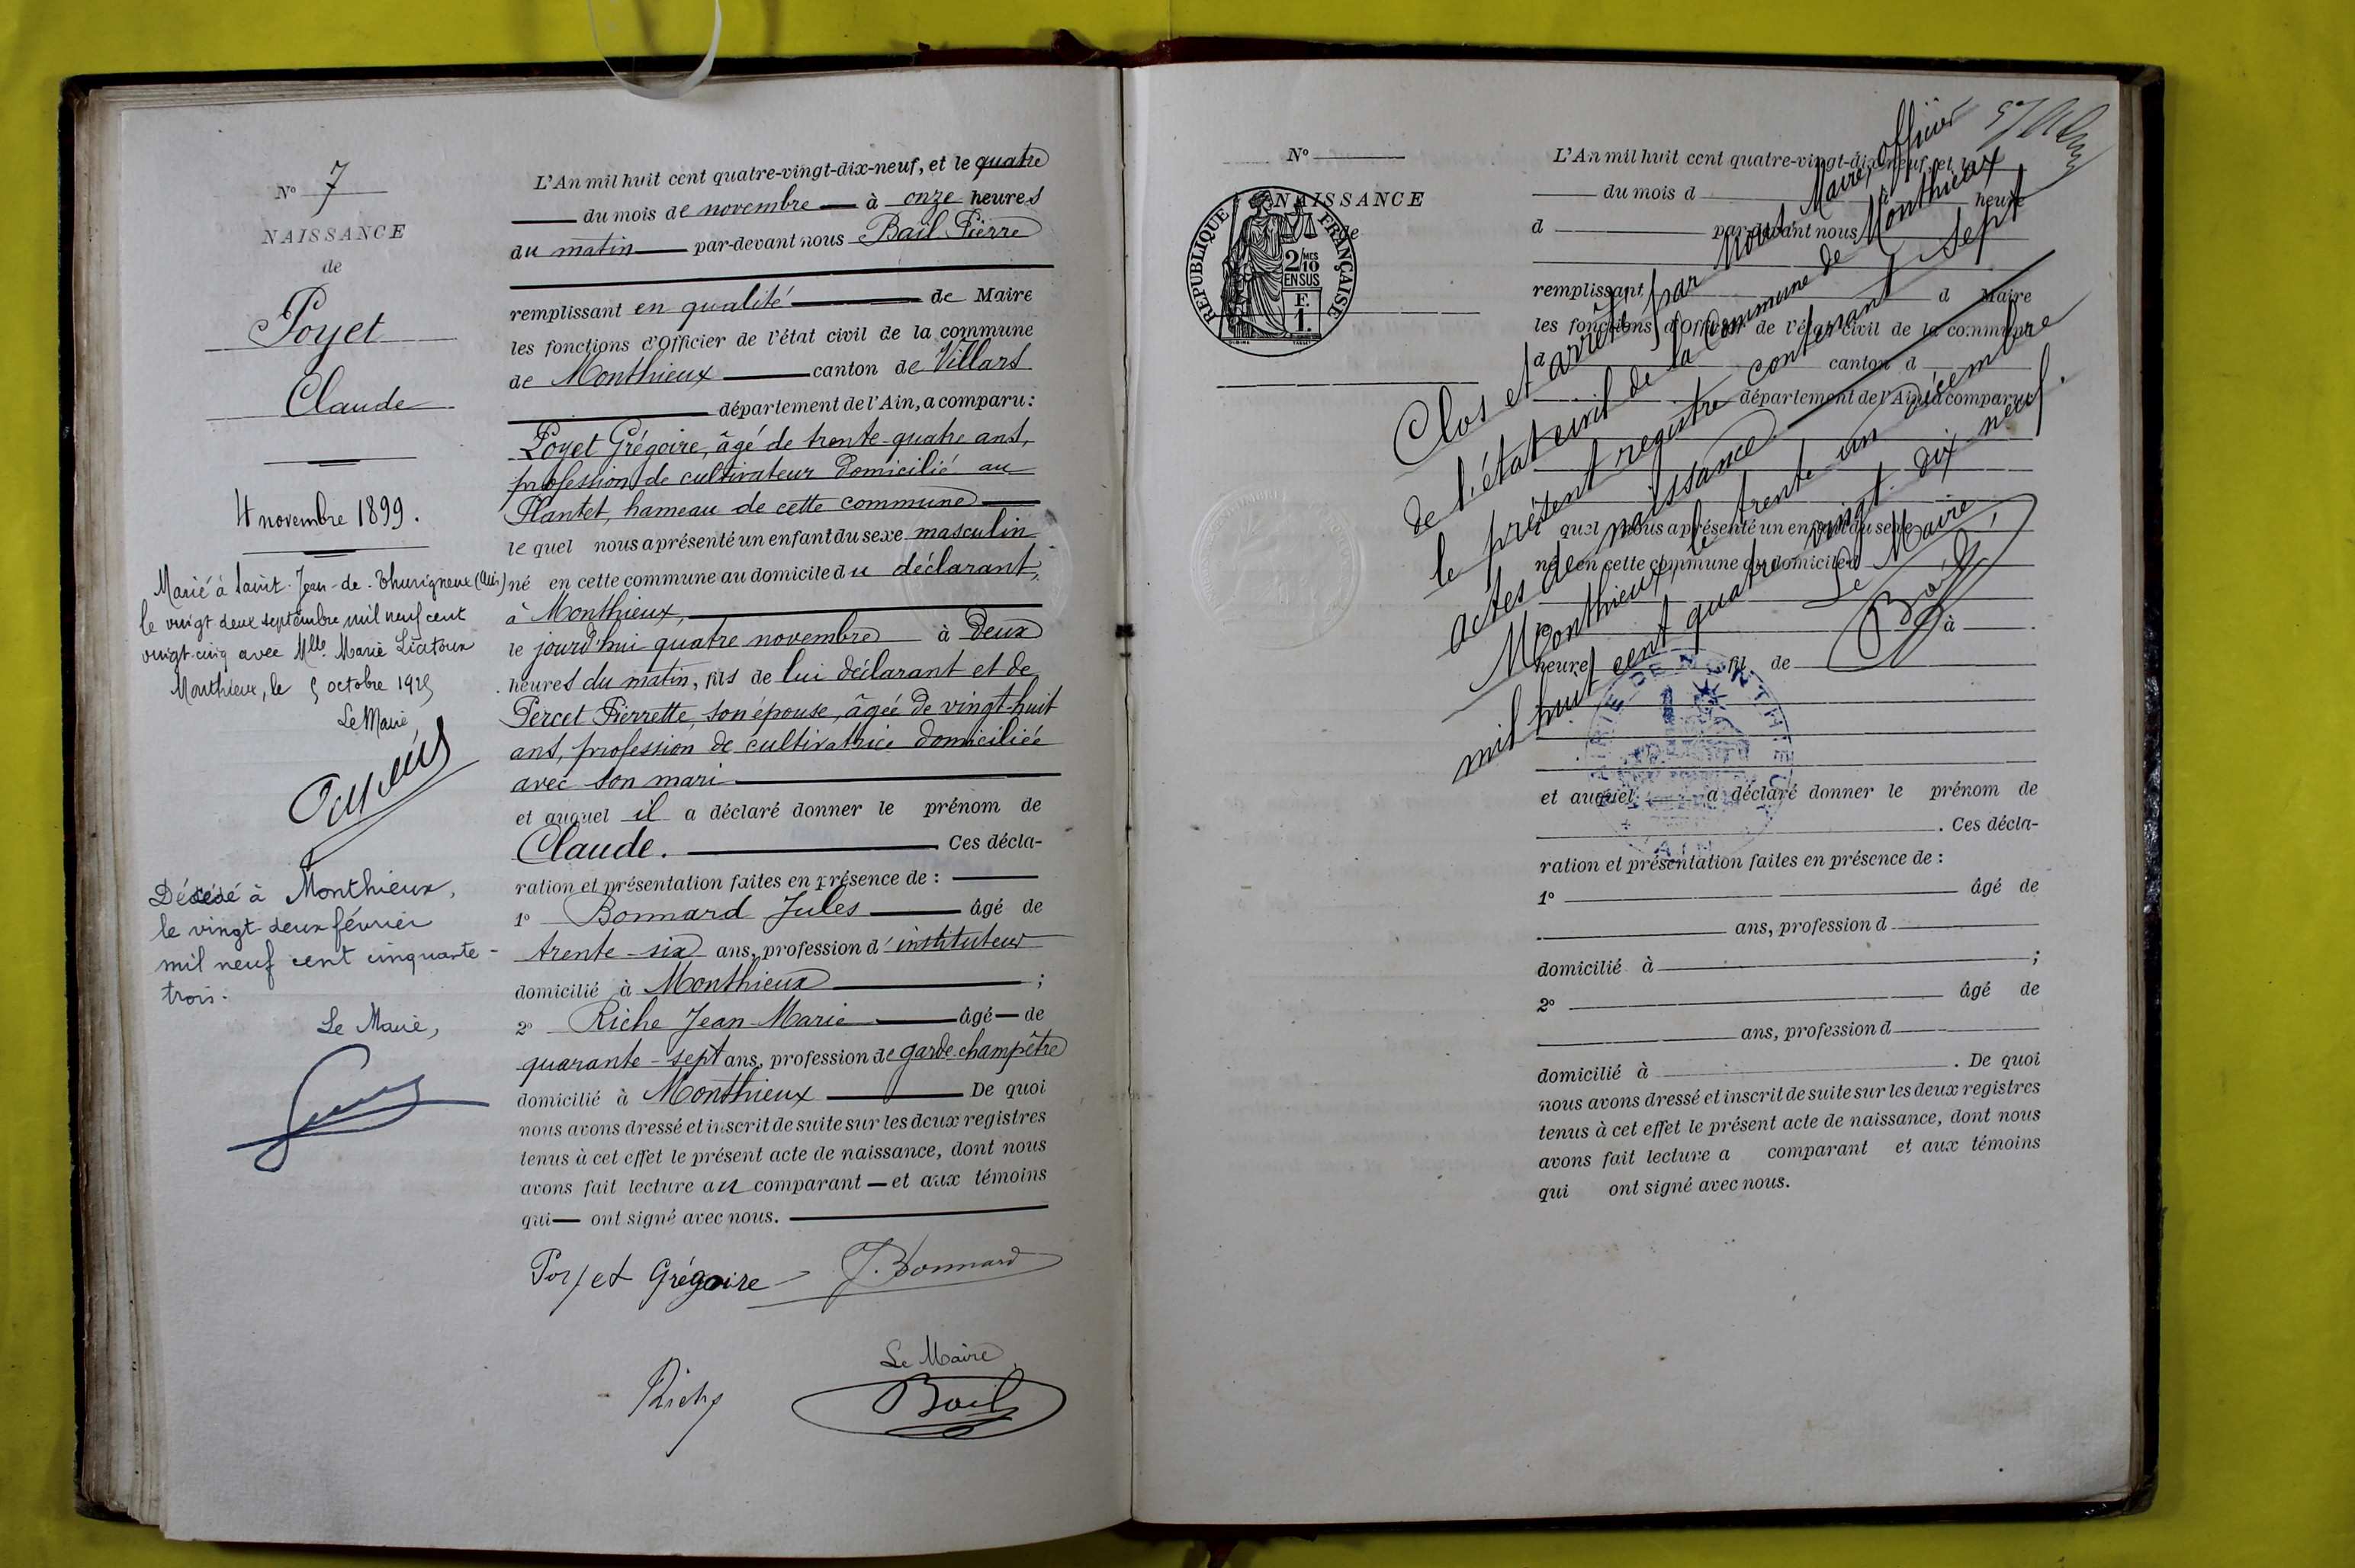 N° 7
NAISSANCE
de
Poyet
Claude
4 novembre 1899.
Marié à Saint-Jean-de-Thurigneux (Ain)
le vingt deux septembre mil neuf cent
vingt-cinq avec Mlle Marie
Monthieux, le 5 octobre 1925
Le Maire
Décédé à Monthieux,
le vingt-deux février
mil neuf cent cinquante-
trois.
Le Maire,
L'An mil huit cent quatre-vingt-dix-neuf, et le quatre
du mois de novembre à onze heures
du matin par-devant nous Bail Pierre
remplissant en qualité de Maire
les fonctions d'Officier de l'état civil de la commune
de Monthieux canton de Villars
département de l'Ain, a comparu:
Poyet Grégoire, âgé de trente-quatre ans,
profession de cultivateur domicilié au
Plantet, hameau de cette commune
le quel nous a présenté un enfant du sexe masculin
né en cette commune au domicile du déclarant,
à Monthieux,
le jourd'hui quatre novembre à deux
heures du matin, fils de lui déclarant et de
Percet Pierrette, son épouse, âgée de vingt-huit
ans, profession de cultivatrice domiciliée
avec son mari
et auquel il a déclaré donner le prénom de
Claude. Ces décla-
ration et présentation faites en présence de :
1° Bonnard Jules âgé de
trente-six ans, profession d'instituteur
domicilié à Monthieux ;
2° Riche Jean-Marie âgé de
quarante-sept ans, profession de garde-champêtre
domicilié à Monthieux De quoi
nous avons dressé et inscrit de suite sur les deux registres
tenus à cet effet le présent acte de naissance, dont nous
avons fait lecture au comparant et aux témoins
qui ont signé avec nous.
Poyet Grégoire J. Bonnard
Le Maire
Riche Bail
N°
NAISSANCE
de
REPUBLIQUE FRANÇAISE
2/10 MES
EN SUS
F.
1.
L'An mil huit cent quatre-vingt-dix-neuf, et le
du mois d à heure
d par-devant nous
remplissant d Maire
les fonctions d'Officier de l'état civil de la commune
d canton d
département de l'Ain, a comparu:
quel nous a présenté un enfant du sexe
né en cette commune au domicile d
le à
heure fil de
et auquel a déclaré donner le prénom de
. Ces décla-
ration et présentation faites en présence de :
1° âgé de
ans, profession d
domicilié à ;
2° âgé de
ans, profession d
domicilié à . De quoi
nous avons dressé et inscrit de suite sur les deux registres
tenus à cet effet le présent acte de naissance, dont nous
avons fait lecture a comparant et aux témoins
qui ont signé avec nous.
Clos et arrêté par nous Maire, officier
de l'état civil de la commune de Monthieux
le présent registre contenant sept
actes de naissance
Monthieux, le trente un décembre
mil huit cent quatre vingt dix neuf.
Le Maire,
Bail
MAIRIE DE MONTHIEUX
AIN